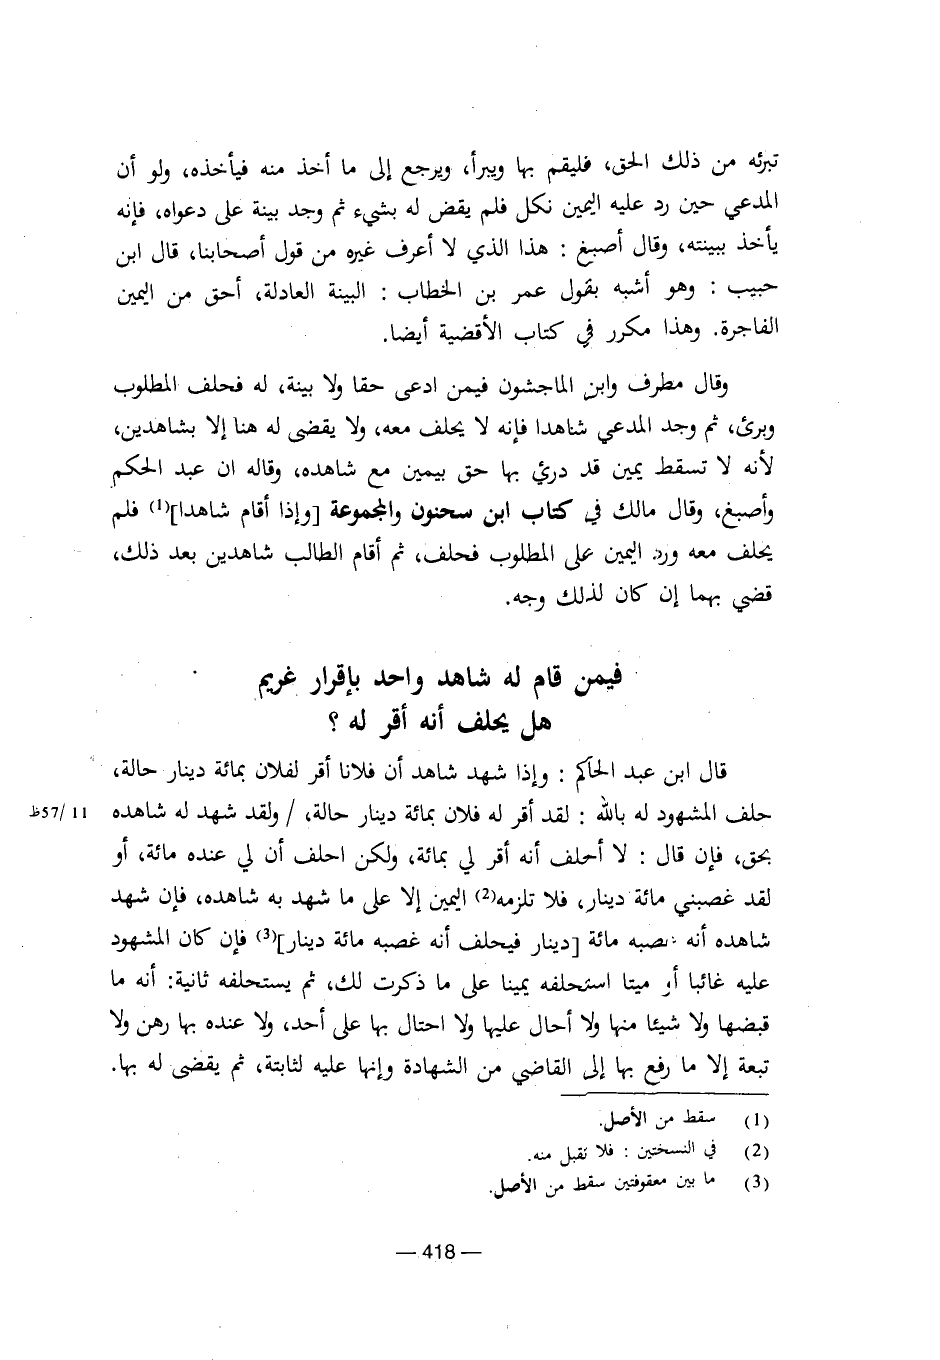 تبرئه من ذلك الحق، فليقم بها ويبرأ، ويرجع إلى ما أخذ منه فيأخذه، ولو أن
المدعي حين رد عليه اليمين نكل فلم يقض له بشيء ثم وجد بينة على دعواه، فإنه
يأخذ ببينته، وقال أصبغ : هذا الذي لا أعرف غيره من قول أصحابنا، قال ابن
حبيب : وهو أشبه بقول عمر بن الخطاب : البينة العادلة، أحق من اليمين
الفاجرة. وهذا مكرر في كتاب الأقضية أيضا.
وقال مطرف وابن الماجشون فيمن ادعى حقا ولا بينة، له فحلف المطلوب
وبرئ، ثم وجد المدعي شاهدا فإنه لا يحلف معه، ولا يقضى له هنا إلا بشاهدين،
لأنه لا تسقط يمين قد درئ بها حق بيمين مع شاهده، وقاله ان عبد الحكم
وأصبغ، وقال مالك في كتاب ابن سحنون والمجموعة [وإذا أقام شاهدا](1) فلم
يحلف معه ورد اليمين على المطلوب فحلف، ثم أقام الطالب شاهدين بعد ذلك،
قضي بهما إن كان لذلك وجه.
فيمن قام له شاهد واحد بإقرار غريم
هل يحلف أنه أقر له ؟
قال ابن عبد الحاكم : وإذا شهد شاهد أن فلانا أقر لفلان بمائة دينار حالة،
حلف المشهود له بالله : لقد أقر له فلان بمائة دينار حالة، / ولقد شهد له شاهده
11 /57ظ
بحق، فإن قال : لا أحلف أنه أقر لي بمائة، ولكن احلف أن لي عنده مائة، أو
لقد غصبني مائة دينار، فلا تلزمه(2) اليمين إلا على ما شهد به شاهده، فإن شهد
شاهده أنه غصبه مائة [دينار فيحلف أنه غصبه مائة دينار](3) فإن كان المشهود
عليه غائبا أو ميتا استحلفه يمينا على ما ذكرت لك، ثم يستحلفه ثانية: أنه ما
قبضها ولا شيئا منها ولا أحال عليها ولا احتال بها على أحد، ولا عنده بها رهن ولا
تبعة إلا ما رفع بها إلى القاضي من الشهادة وإنها عليه لثابتة، ثم يقضى له بها.
(1) سقط من الأصل.
(2) في النسختين : فلا تقبل منه.
(3) ما بين معقوفتين سقط من الأصل.
— 418 —